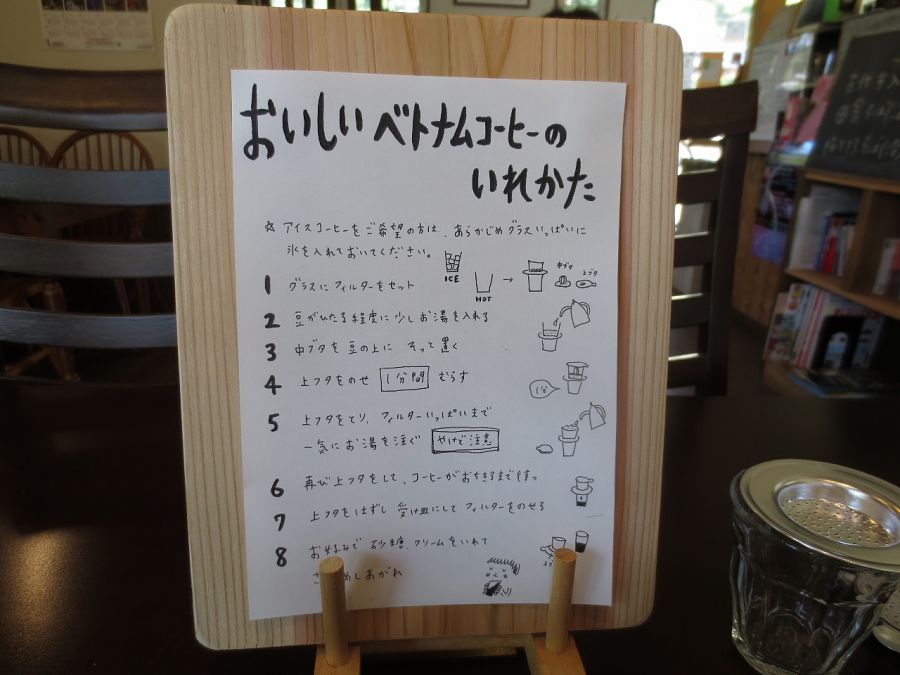 おいしいベトナムコーヒーの
いれかた
☆ アイスコーヒーをご希望の方は、あらかじめグラスいっぱいに
氷を入れておいてください。
ICE
HOT
中ブタ
上ブタ
1 グラスにフィルターをセット
2 豆がひたる程度に少しお湯を入れる
3 中ブタを豆の上に そっと置く
4 上フタをのせ 1分間 むらす
1分
5 上フタをとり、フィルターいっぱいまで
一気にお湯を注ぐ やけど注意
6 再び上フタをして、コーヒーがおちきるまで待つ
7 上フタをはずし 受け皿にして フィルターをのせる
8 お好みで 砂糖、クリームをいれて
めしあがれ